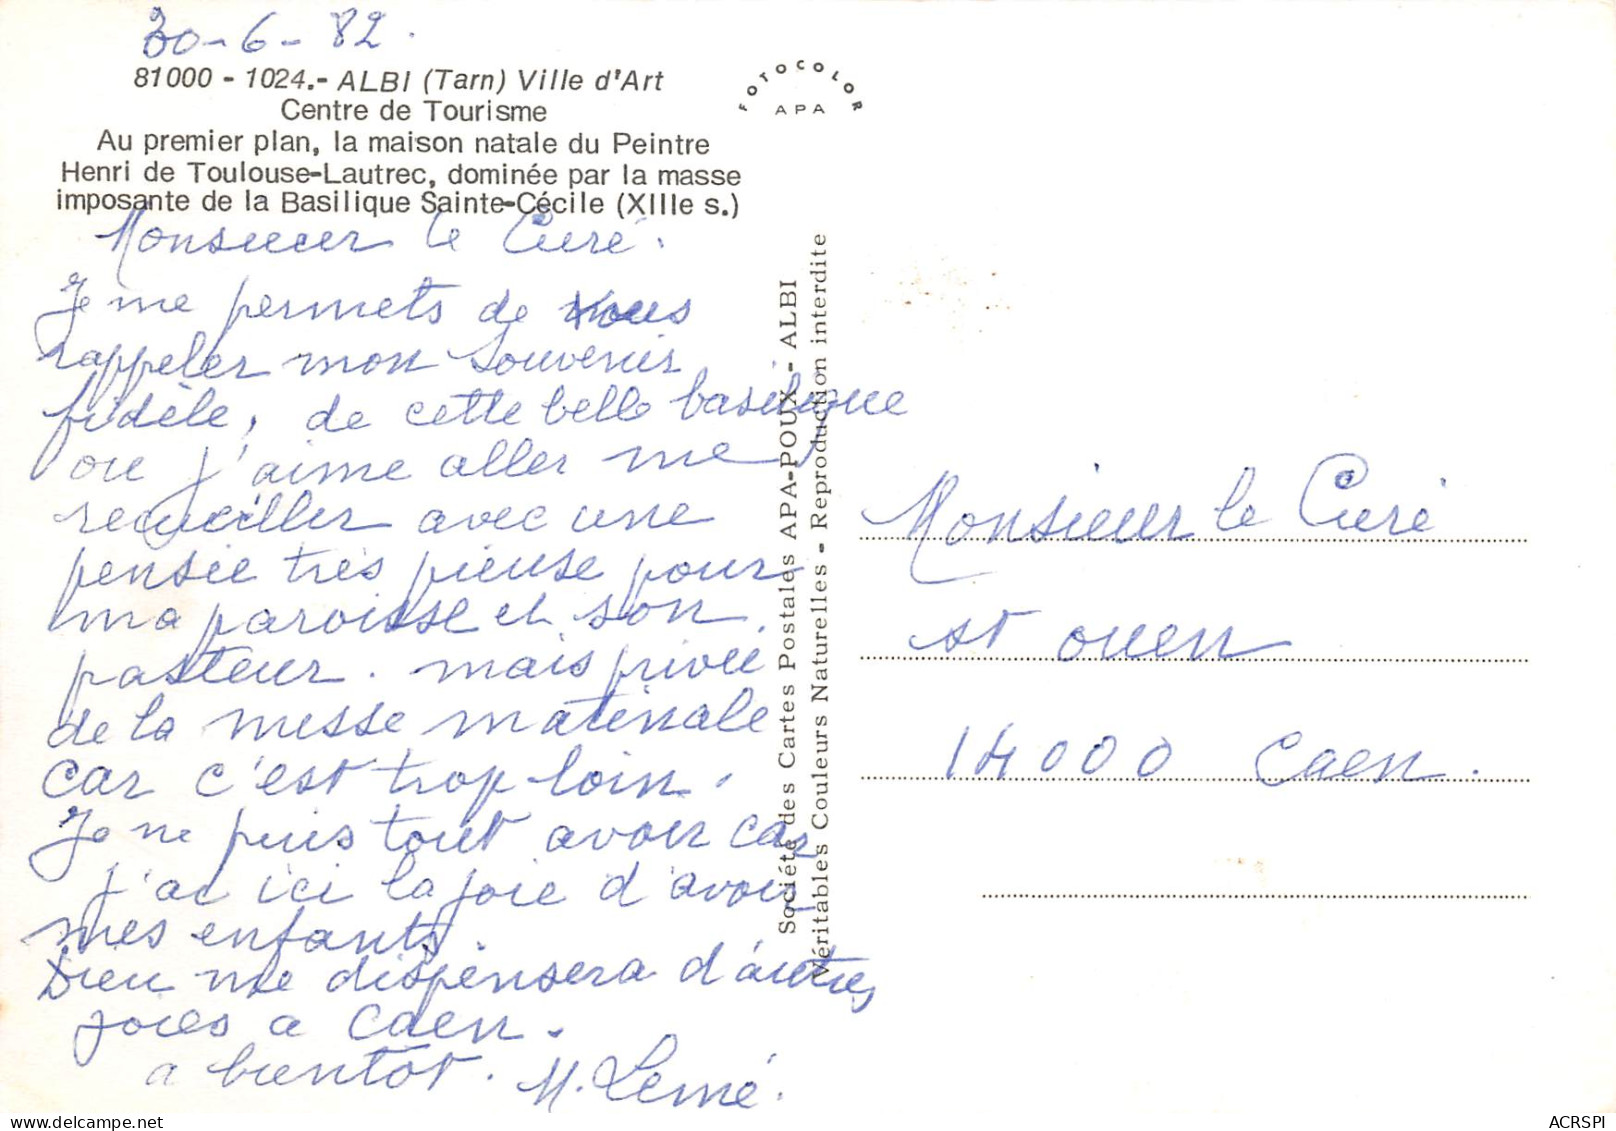 30-6-82.
81000 - 1024.- ALBI (Tarn) Ville d'Art
Centre de Tourisme
Au premier plan, la maison natale du Peintre
Henri de Toulouse-Lautrec, dominée par la masse
imposante de la Basilique Sainte-Cécile (XIIIe s.)
FOTOCOLOR
APA
Monsieur le Curé.
Je me permets de vous
rappeler mon souvenir
fidèle, de cette belle basilique
ou j'aime aller me
recueillir avec une
pensée très pieuse pour
ma paroisse et son
pasteur. mais privée
de la messe matinale
car c'est trop loin.
Je ne puis tout avoir car
j'ai ici la joie d'avoir
mes enfants
Dieu me dispensera d'autres
joies a Caen.
a bientot. M.
Société des Cartes Postales APA-POUX - ALBI
Véritables Couleurs Naturelles - Reproduction interdite
Monsieur le Curé
st ouen
14000 Caen.
ACRSPI